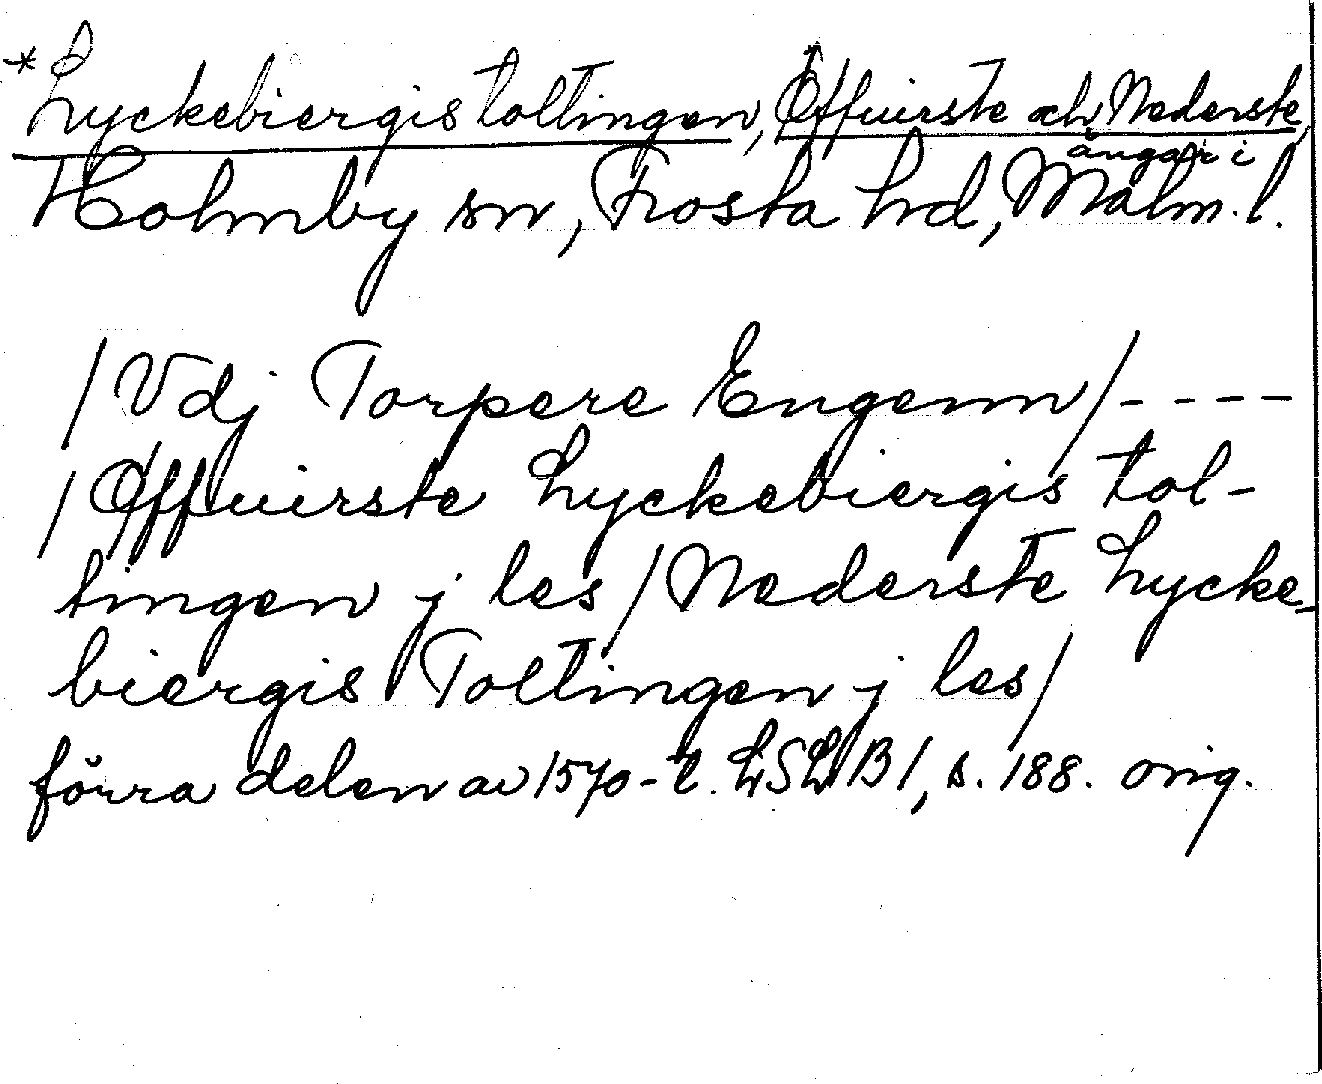 *Lyckebiergis toltingen, Øffuerste och Nederste,
ängar i
Holmby sn, Frosta hd, Malm. l.
/Vdj Torpere Engenn/----
/Øffuerste Lyckebiergis tol-
tingen j les/Nederste Lycke-
biergis Toltingen j les/
förra delen av 1570-t. LSLB1, s. 188. orig.